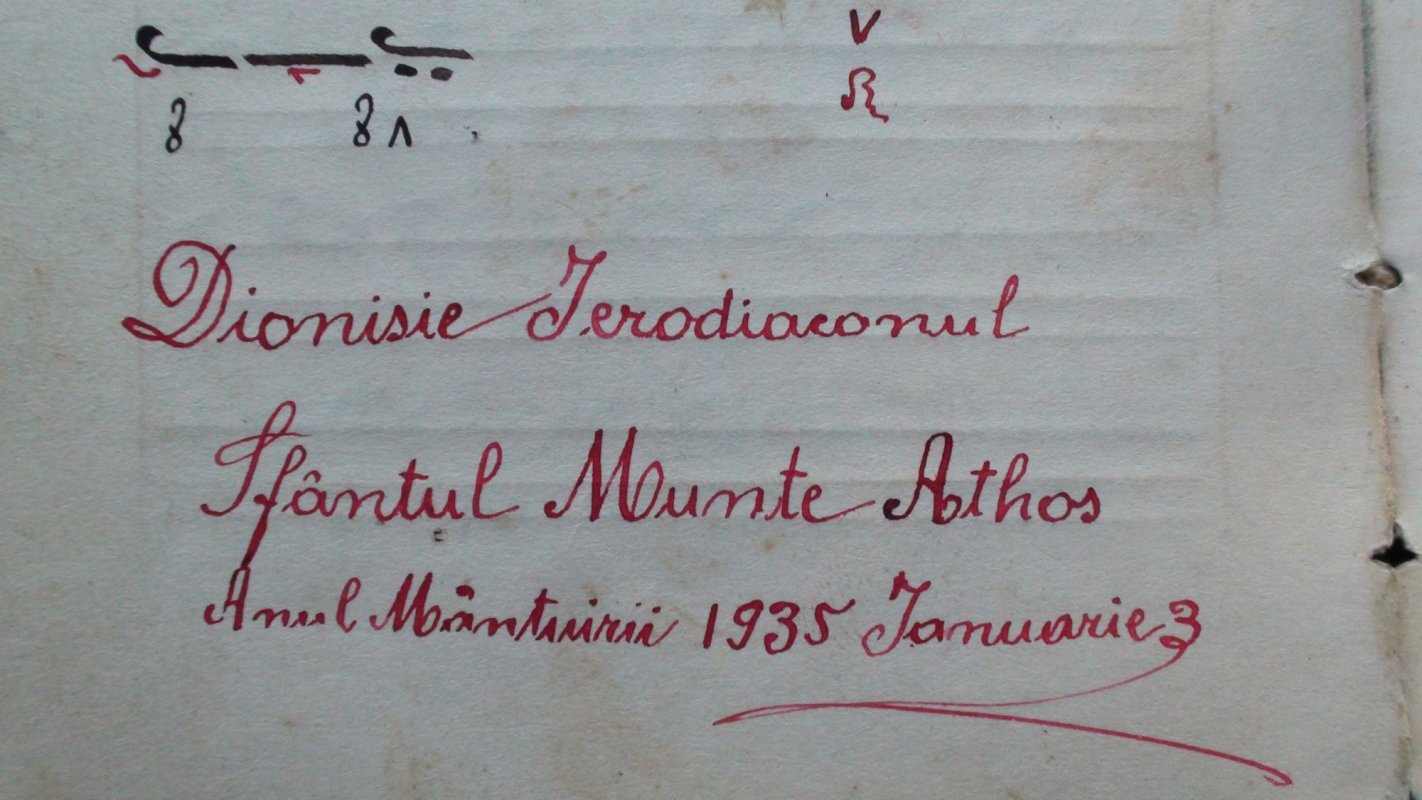 Dionisie Ierodiaconul
Sfântul Munte Athos
Anul Mântuirii 1935 Ianuarie 3